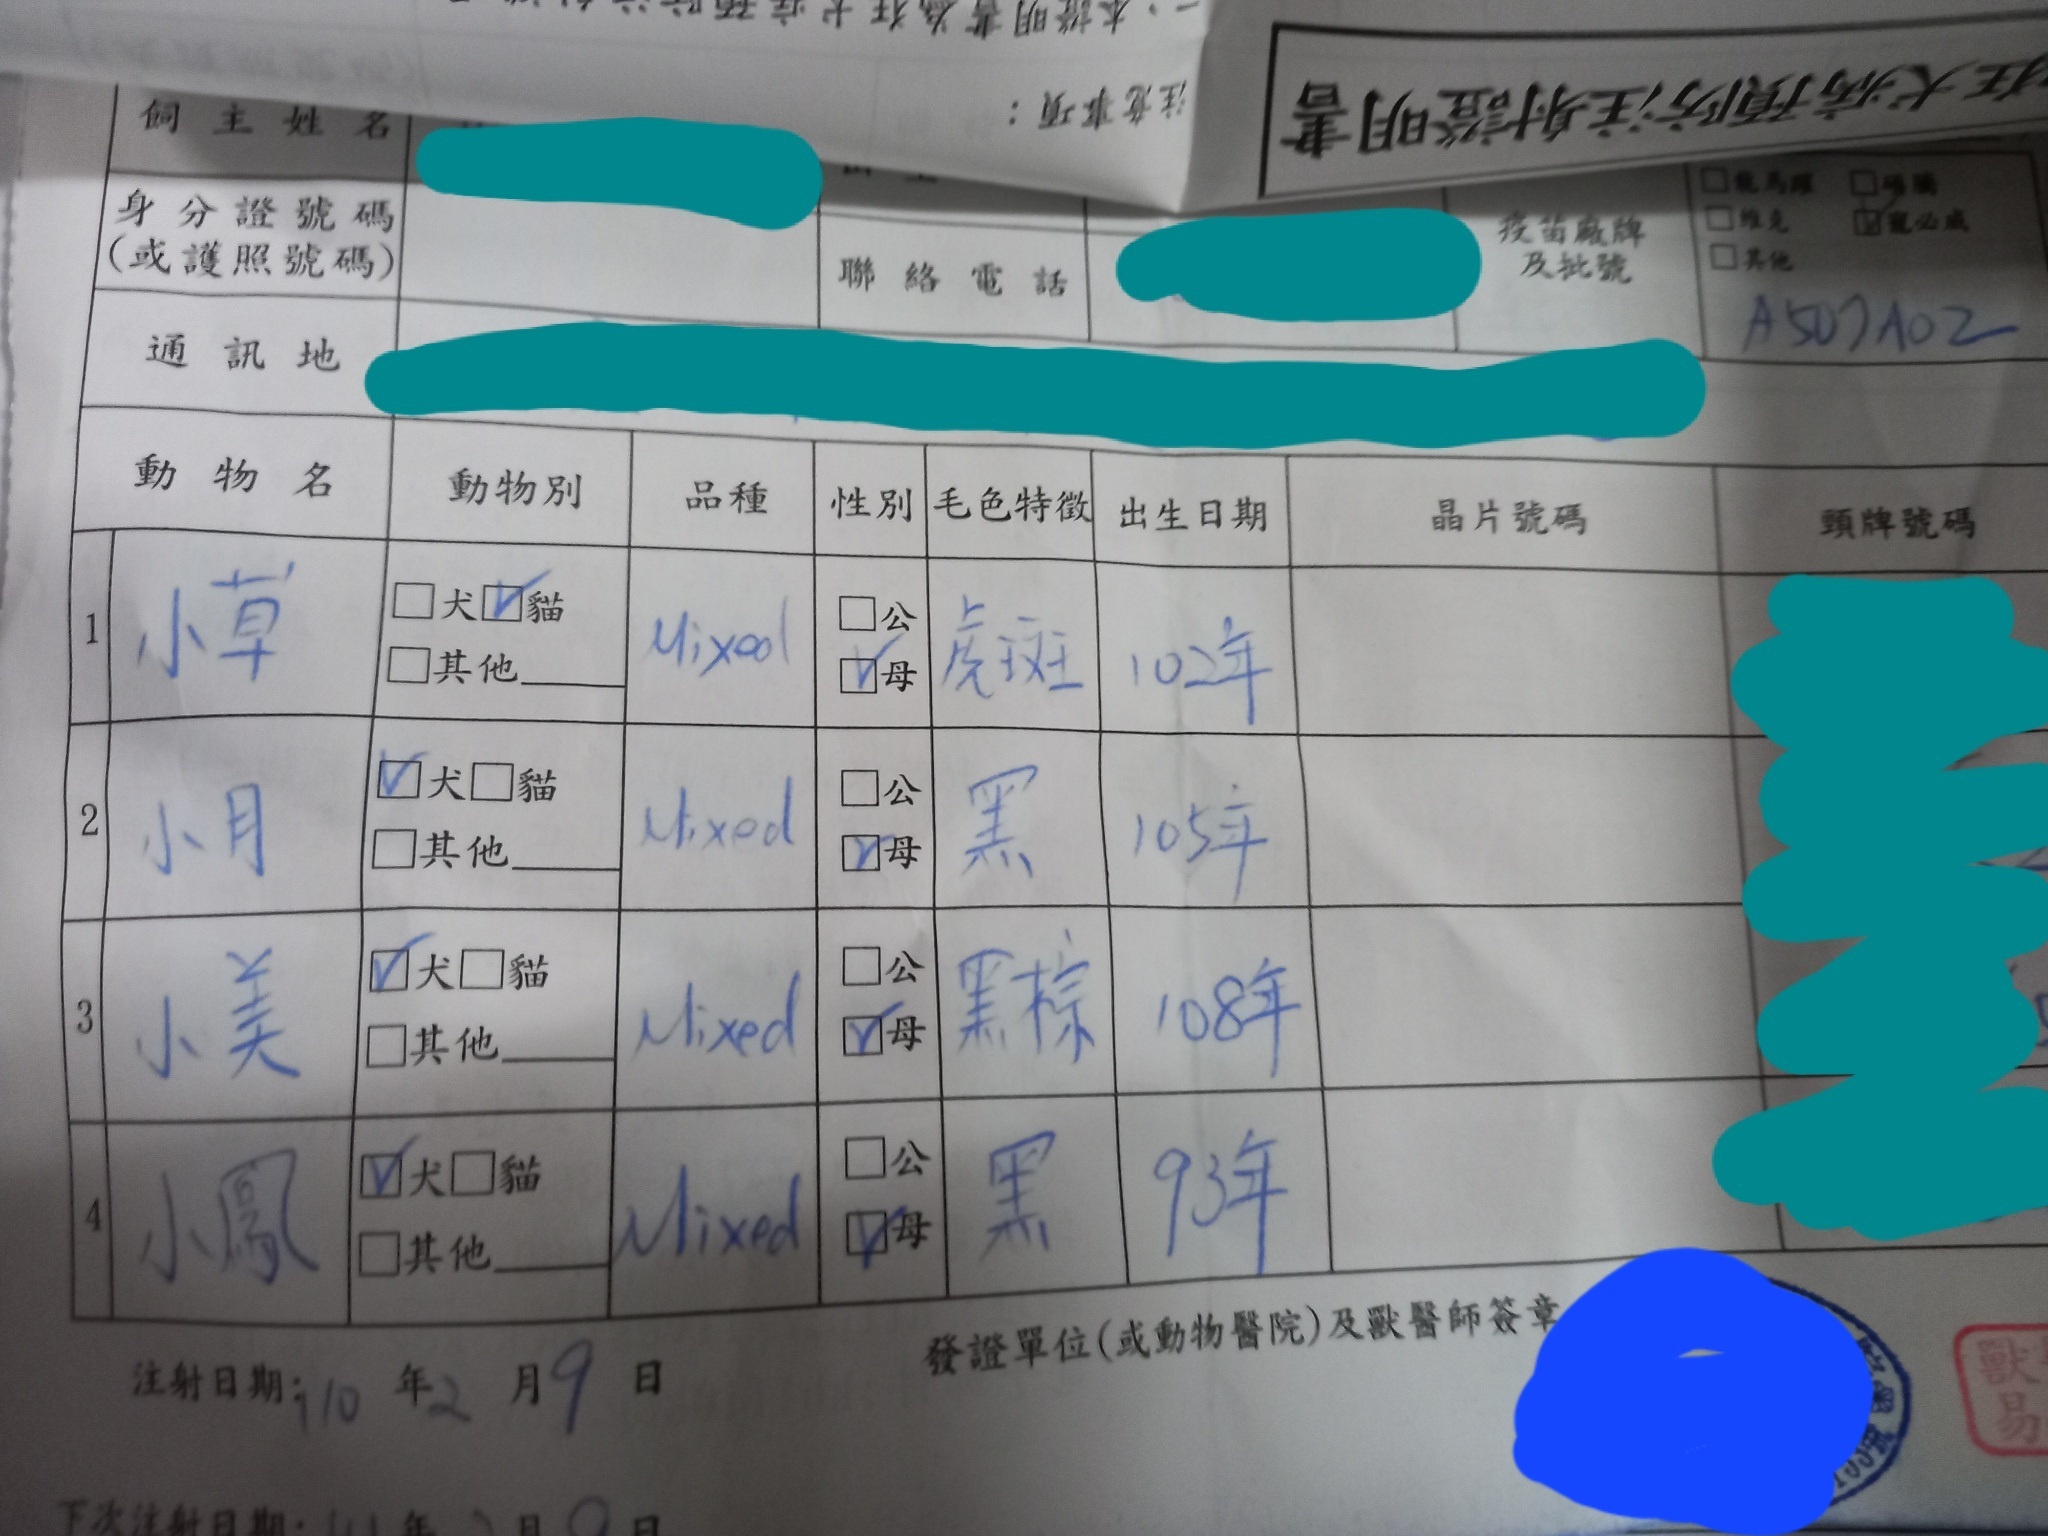 一、本證明書為狂犬病預防注射
注意事項：
狂犬病預防注射證明書
飼主姓名
身分證號碼
(或護照號碼)
聯絡電話
疫苗廠牌
及批號
□龍馬躍 □碩騰
□維克 ☑寵必威
□其他
A507A02
通訊地
動物名 動物別 品種 性別 毛色特徵 出生日期 晶片號碼 頸牌號碼
1 小草 □犬☑貓 □其他 Mixed □公 ☑母 虎斑 102年
2 小月 ☑犬□貓 □其他 Mixed □公 ☑母 黑 105年
3 小美 ☑犬□貓 □其他 Mixed □公 ☑母 黑棕 108年
4 小鳳 ☑犬□貓 □其他 Mixed □公 ☑母 黑 93年
發證單位(或動物醫院)及獸醫師簽章
獸
易
注射日期:110年2月9日
下次注射日期:111年2月9日